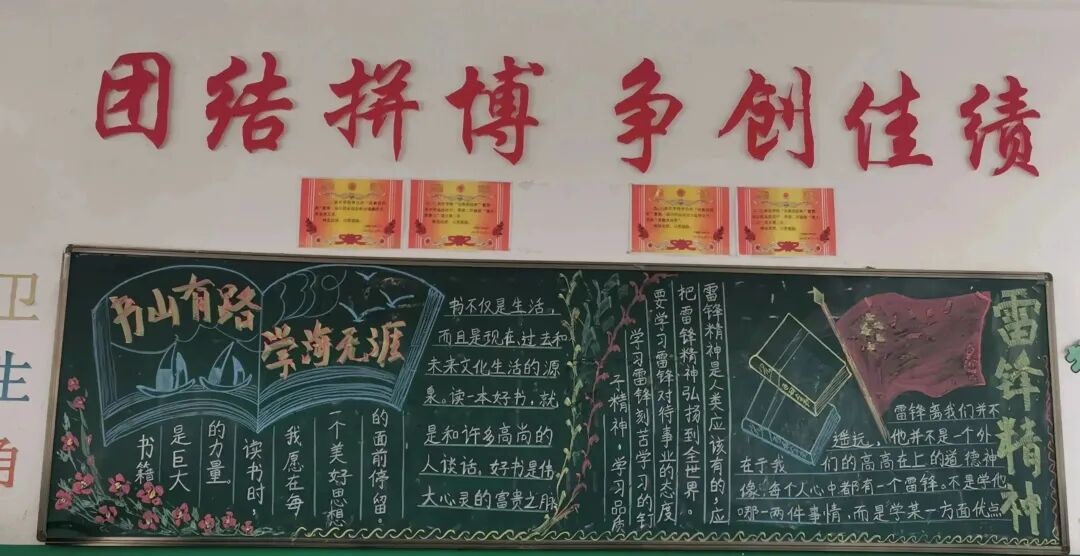 团结拼博 争创佳绩
卫
生
角
书山有路
学海无涯
书籍
是巨大
的力量。
读书时,
我愿在每
一个美好思想
的面前停留。
书不仅是生活,
而且是现在、过去和
未来文化生活的源
泉。读一本好书,就
是和许多高尚的
人谈话,好书是伟
大心灵的富贵之脉
雷锋精神是人类应该有的,应
把雷锋精神弘扬到全世界。
要学习雷锋对待事业的态度
学习雷锋刻苦学习的钉
子精神,学习品质
雷锋精神
雷锋离我们并不
遥远,他并不是一个外
在于我们的高高在上的道德神
像,每个人心中都有一个雷锋。不是学他
哪一两件事情,而是学某一方面优点